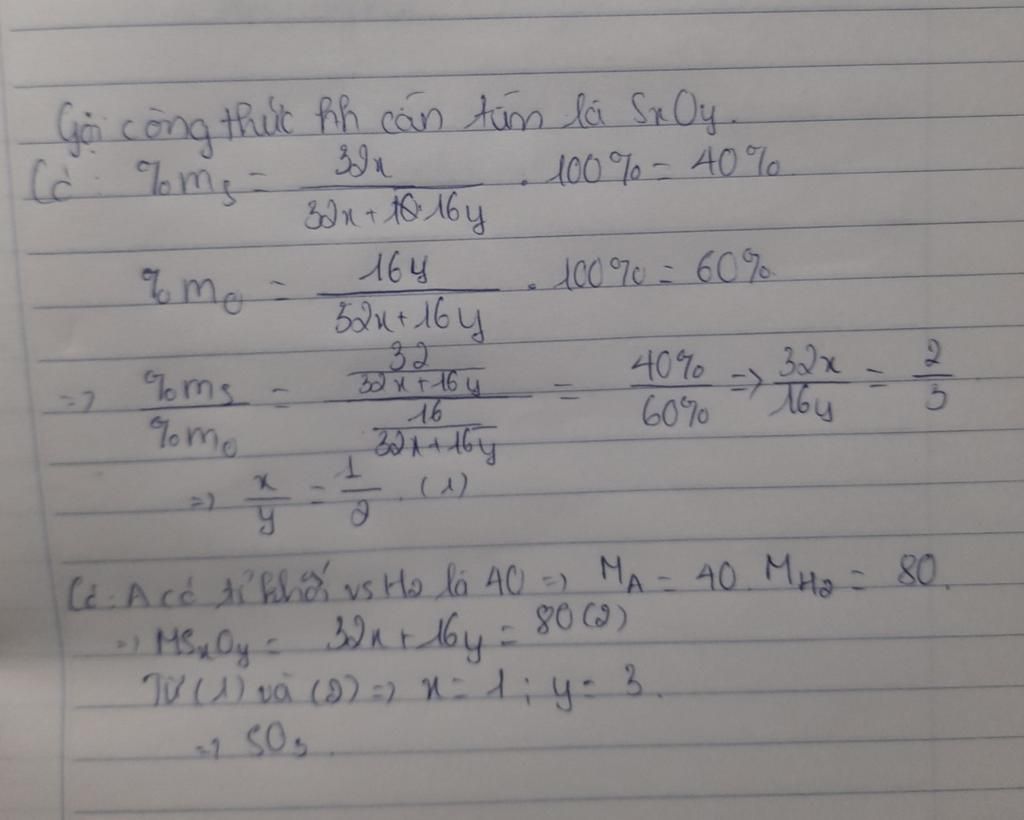 Gọi công thức hh cần tìm là SxOy.
Có: %mS = 32x / (32x + 16y) . 100% = 40%
%mO = 16y / (32x + 16y) . 100% = 60%
=> %mS / %mO = (32 / (32x + 16y)) / (16 / (32x + 16y)) = 40% / 60% => 32x / 16y = 2 / 3
=> x / y = 1 / 2 . (1)
Có: A có tỉ khối vs H2 là 40 => MA = 40. MH2 = 80.
=> MSxOy = 32x + 16y = 80 (2)
Từ (1) và (2) => x = 1 ; y = 3.
=> SO3.